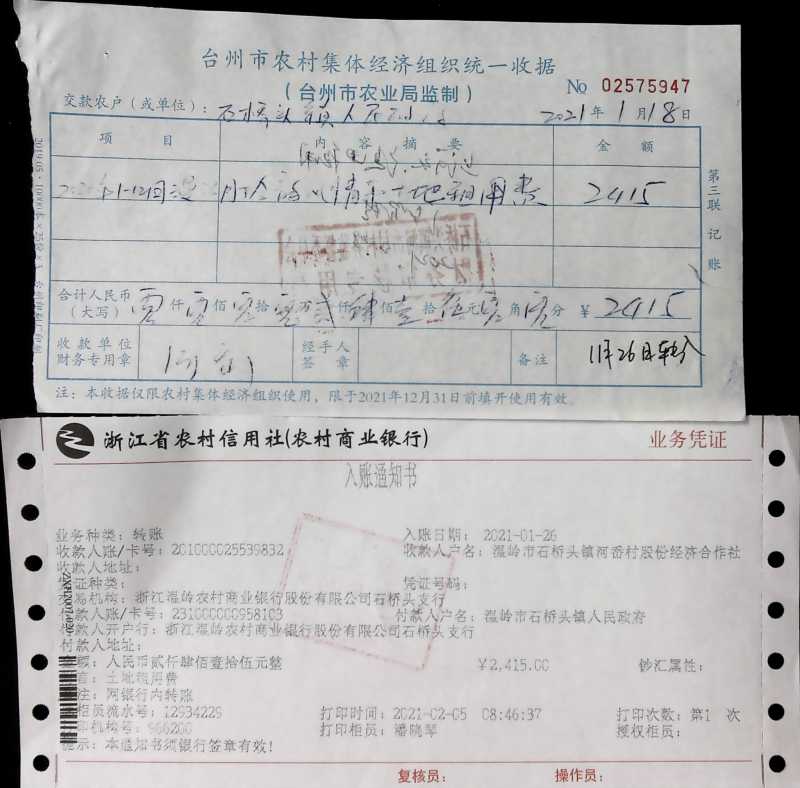 台州市农村集体经济组织统一收据
(台州市农业局监制)
No 02575947
交款农户（或单位）：石桥头镇人民政府 2021年1月18日
项 目 内 容 摘 要 金 额
土地租用费 2415
第三联 记账
合计人民币（大写） 零仟零佰零拾零万贰仟肆佰壹拾伍元零角零分 ¥ 2415
收款单位财务专用章 经手人签章 备注
注：本收据仅限农村集体经济组织使用，限于2021年12月31日前填开使用有效。
浙江省农村信用社(农村商业银行) 业务凭证
入账通知书
业务种类：转账 入账日期：2021-01-26
收款人账/卡号：201000025539832 收款人户名：温岭市石桥头镇河岙村股份经济合作社
收款人地址：
凭证种类： 凭证号码：
交易机构：浙江温岭农村商业银行股份有限公司石桥头支行
付款人账/卡号：231000000958103 付款人户名：温岭市石桥头镇人民政府
付款人开户行：浙江温岭农村商业银行股份有限公司石桥头支行
付款人地址：
额：人民币贰仟肆佰壹拾伍元整 ¥2,415.00 钞汇属性：
土地租用费
注：网银行内转账
柜员流水号：12934229 打印时间：2021-02-05 08:46:37 打印次数：第1 次
打印机构号：966200 打印柜员：潘晓琴 授权柜员：
提示：本通知书须银行签章有效！
复核员： 操作员：